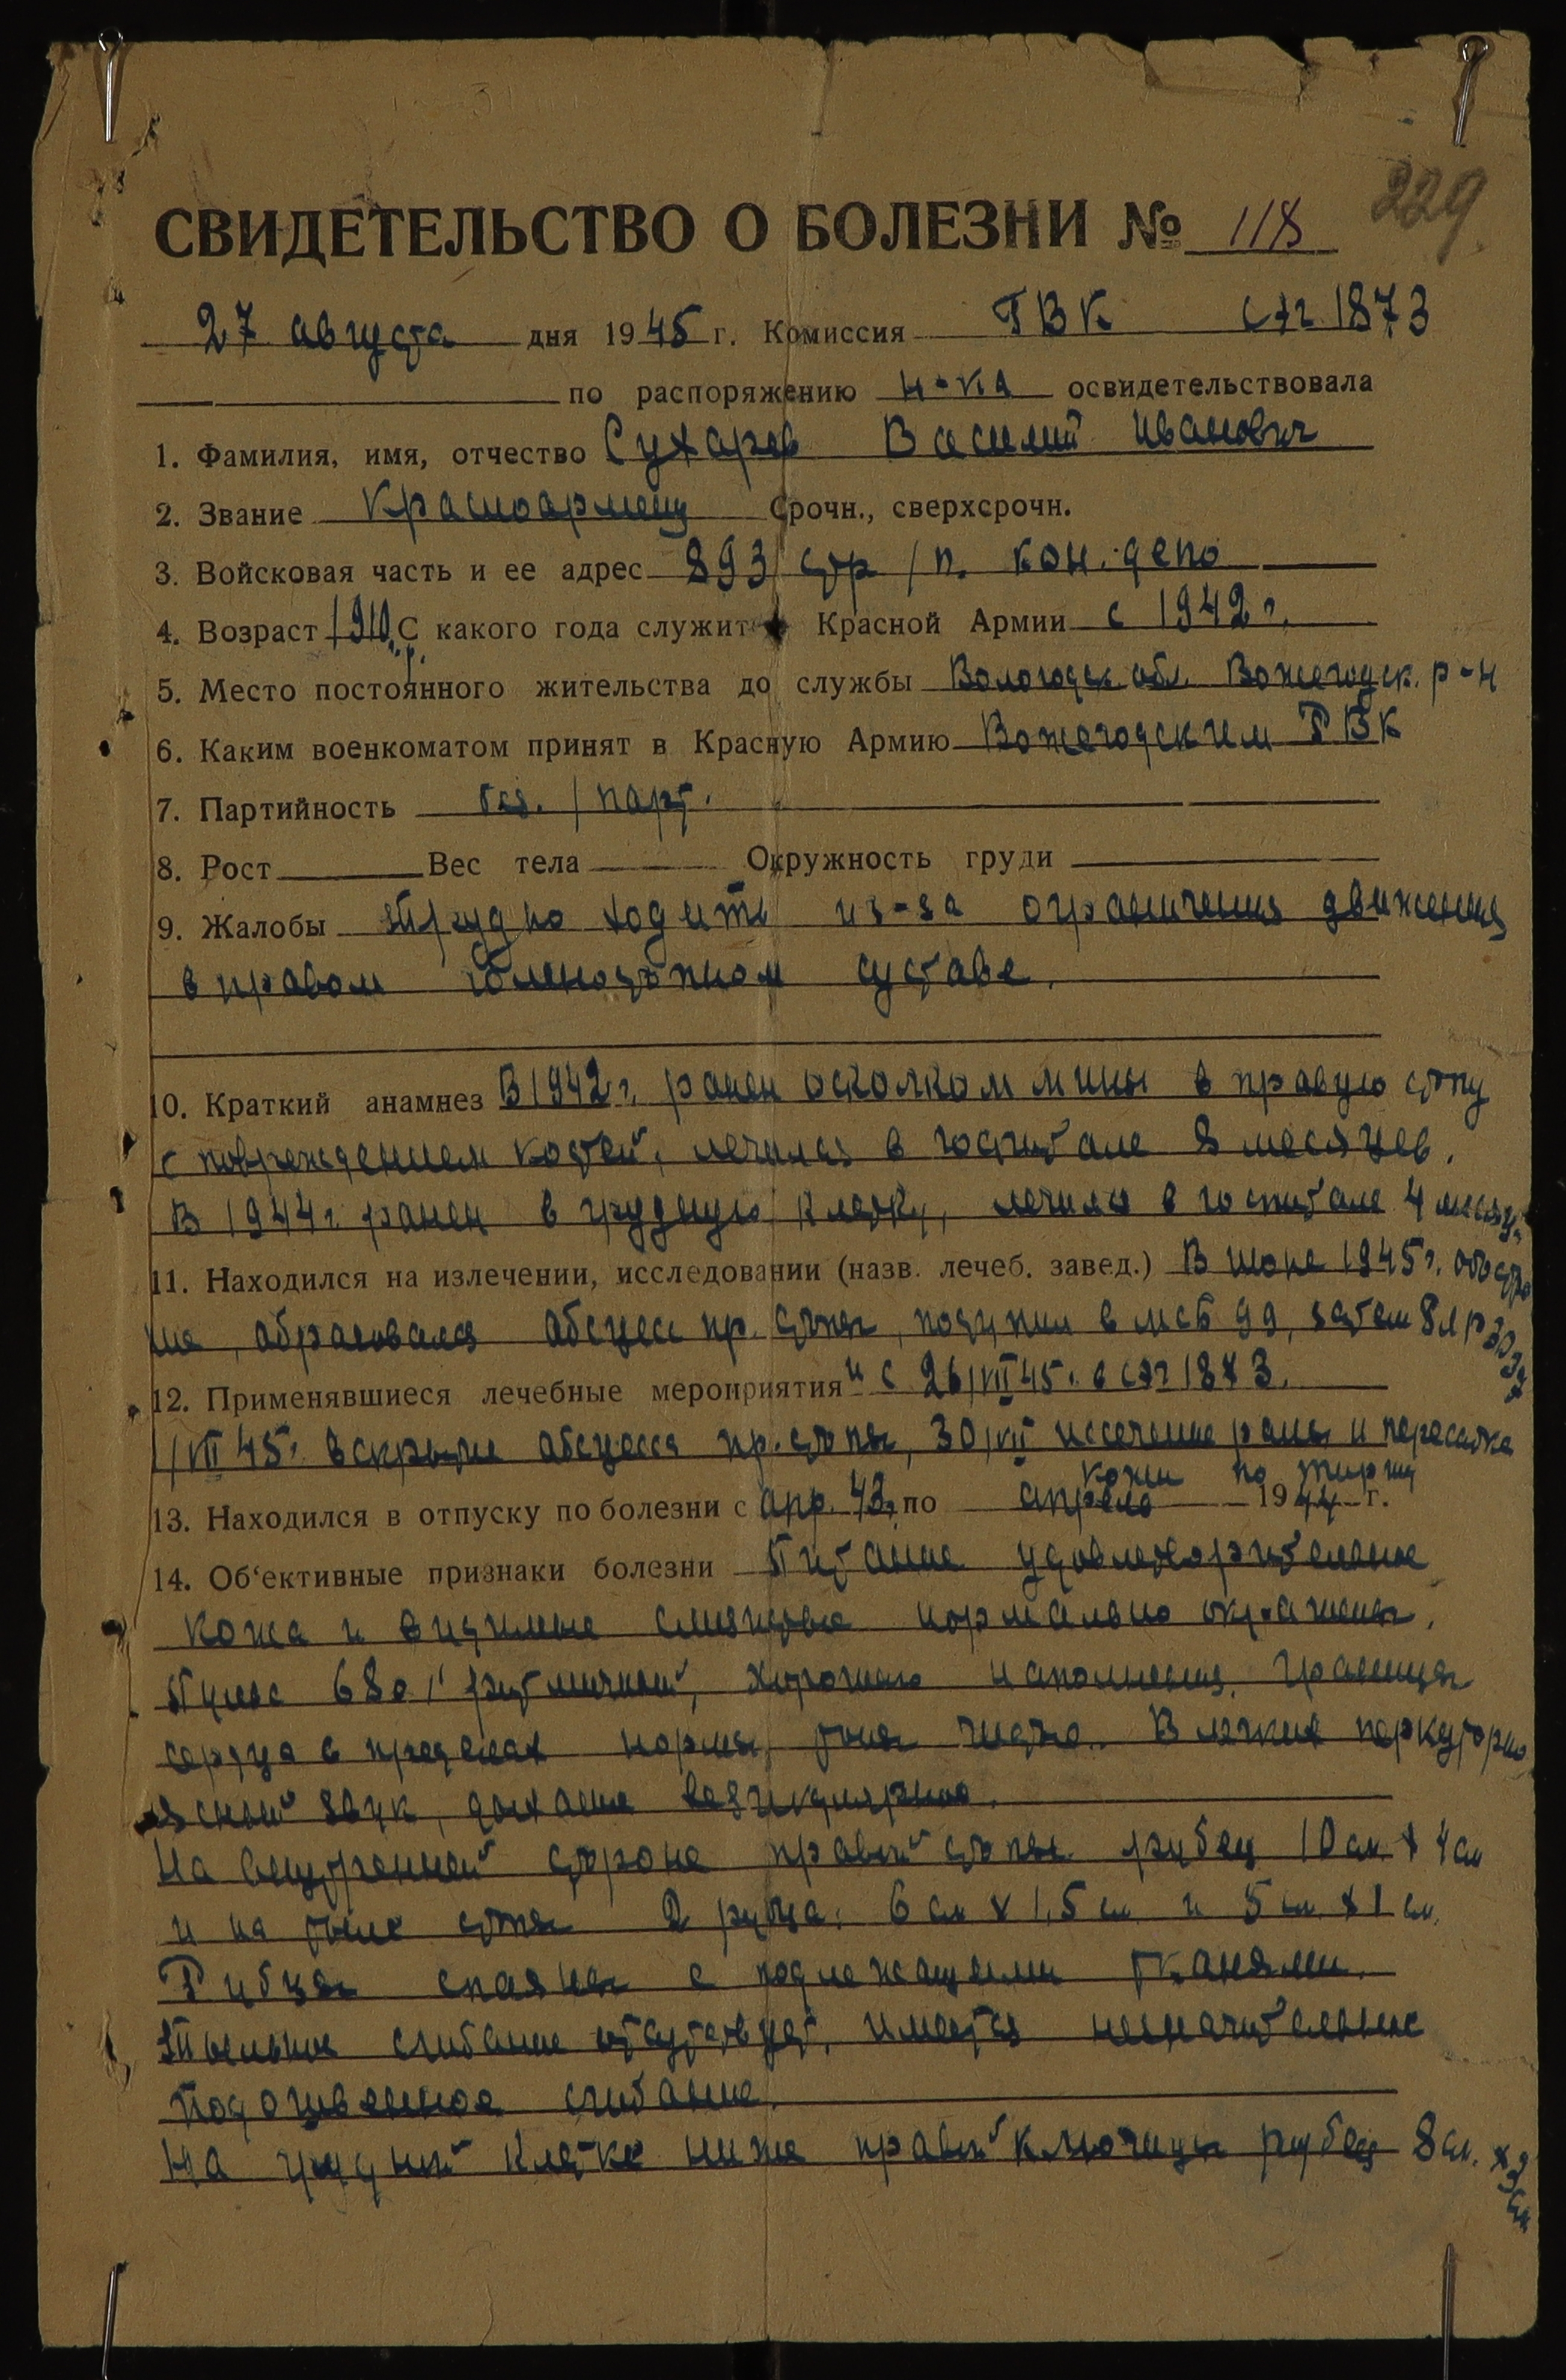 229
СВИДЕТЕЛЬСТВО О БОЛЕЗНИ № 118
27 августа дня 1945 г. Комиссия ГВК СЭГ 1873
по распоряжению н-ка освидетельствовала
1. Фамилия, имя, отчество Сухарев Василий Иванович
2. Звание Красноармеец Срочн., сверхсрочн.
3. Войсковая часть и ее адрес 893 стр/п. кон. депо
4. Возраст 1910 г.р. С какого года служит в Красной Армии с 1942 г.
5. Место постоянного жительства до службы Вологодск. обл. Вожегодск. р-н
6. Каким военкоматом принят в Красную Армию Вожегодским РВК
7. Партийность без./парт.
8. Рост Вес тела Окружность груди
9. Жалобы Трудно ходить из-за ограничения движения
в правом голеностопном суставе.
10. Краткий анамнез В 1942 г. ранен осколком мины в правую стопу
с повреждением костей, лечился в госпитале 8 месяцев.
В 1944 г. ранен в грудную клетку, лечился в госпитале 4 месяц.
11. Находился на излечении, исследовании (назв. лечеб. завед.) В июне 1945 г. обостре
ние, абсцесс пр. стопы, поступил в МСБ 99, затем
12. Применявшиеся лечебные мероприятия и с 26/VII 45 г. в СЭГ 1873.
1/VII 45 г. вскрытие абсцесса пр. стопы, 30/VII иссечение раны и пересадка
кожи по Тиршу
13. Находился в отпуску по болезни с апр. 43 г. по апрель 1944 г.
14. Об‘ективные признаки болезни Питание удовлетворительное
кожа и видимые слизистые нормально окрашены.
Пульс 68 в 1' ритмичный, хорошего наполнения. Границы
сердца в пределах нормы, тоны чисто. В легких перкуторно
ясный звук, дыхание везикулярное.
На внутренней стороне правой стопы рубец 10 см х 4 см
и на тыле стопы 2 рубца: 6 см х 1,5 см и 5 см х 1 см.
Рубцы спаяны с подлежащими тканями.
Тыльное сгибание отсутствует, имеется незначительное
подошвенное сгибание.
На грудной клетке ниже правой ключицы рубец 8 см. х 3 см